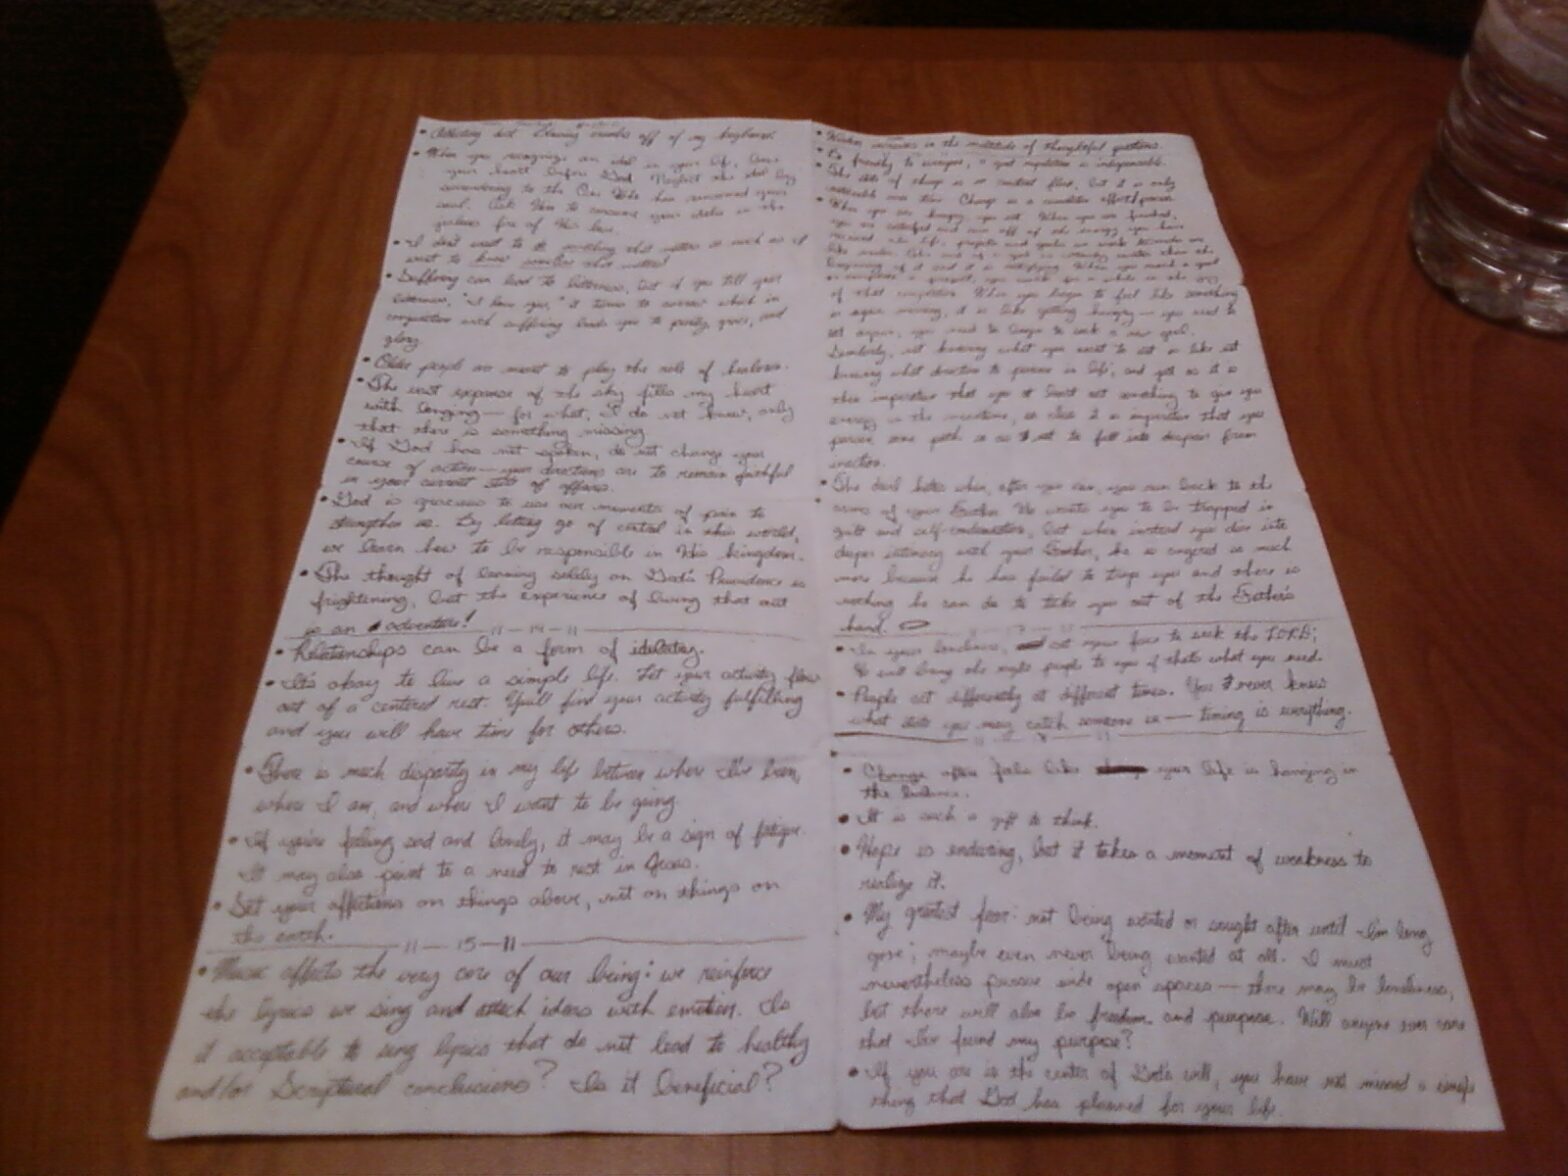 • Cleaning crumbs off of my keyboard.
• When you recognize an idol in your life, lay
your heart before God. Neglect the idol by
surrendering to the One Who has
to
• I don't want to do something that matters as much as I
want to know Someone that matters!
• Suffering can lead to bitterness, but if you tell your
"I love you," it turns to which in
conjunction with suffering leads you to purity, and
glory.
• Older people are meant to play the role of healers.
• The vast expanse of the sky fills my heart
with longing — for what, I do not know, only
that there is something missing.
• If God has not spoken, do not change your
course of action — your directions are to remain faithful
in your current state of affairs.
• God is gracious to use our moments of pain to
strengthen us. By letting go of control in this world,
we learn how to be responsible in His kingdom.
• The thought of leaning solely on God's Providence is
frightening, but the experience of living that out
is an adventure!
11 — 14 — 11
• Relationships can be a form of idolatry.
• It's okay to live a simple life. Let your activity flow
out of a centered rest. You'll find your activity fulfilling
and you will have time for others.
• There is much disparity in my life between where I've been,
where I am, and where I want to be going.
• If you're feeling sad and lonely, it may be a sign of fatigue.
It may also point to a need to rest in Jesus.
• Set your affections on things above, not on things on
the earth.
11 — 15 — 11
• Music affects the very core of our being: we reinforce
the lyrics we sing and attach ideas with emotion. Is
it acceptable to sing lyrics that do not lead to healthy
and/or Scriptural conclusions? Is it beneficial?
• in the multitude of thoughtful questions.
• is indispensable.
• The state of change is in constant flux, but it is only
noticeable over time. Change is a cumulative effort/process.
• When you are hungry, you eat. When you are finished,
you are satisfied and
of that completion. When you begin to feel like something
is again missing, it is like getting hungry — you need to
eat again; you need to begin to seek a new goal.
Similarly, not knowing what you want to eat is like not
knowing what direction to pursue in life; and yet as it is
this imperative that you at least eat something to give you
energy in the meantime, so also it is imperative that you
pursue some path so as not to fall into despair from
inaction.
• The devil hates when, after you sin, you run back to the
arms of your Father. He wants you to be trapped in
guilt and self condemnation, but when instead you draw into
deeper intimacy with your Father, he is enraged so much
more because he has failed to trap you and there is
nothing he can do to take you out of the Father's
hand.
• In your loneliness, set your face to seek the LORD;
He will bring the right people to you if that's what you need.
• People act differently at different times. You never know
what state you may catch someone in — timing is everything.
• Change often feels like your life is hanging in
the balance.
• It is such a gift to think.
• Hope is enduring, but it takes a moment of weakness to
realize it.
• My greatest fear: not being wanted or sought after until I'm long
gone; maybe even never being wanted at all. I must
nevertheless pursue wide open spaces — there may be loneliness,
but there will also be freedom and purpose. Will anyone ever care
that I've found my purpose?
• If you are in the center of God's will, you have not missed a single
thing that God has planned for your life.